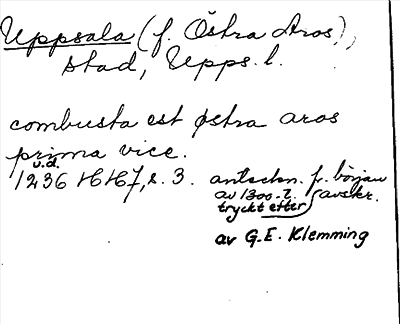 Uppsala (f. Östra Aros),
stad, Upps. l.
combusta est østra aros
prima vice.
u.d.
1236 HH7, s. 3. anteckn. f. början
av 1300-t. (avskr.
tryckt efter
av G.E. Klemming